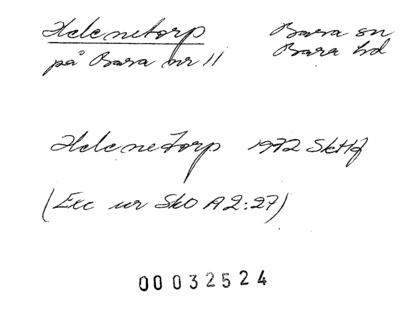 Helenetorp Bara sn
på Bara nr 11 Bara hd
Helenetorp 1972 SkHf
(Exc ur SkO A2:27)
00032524